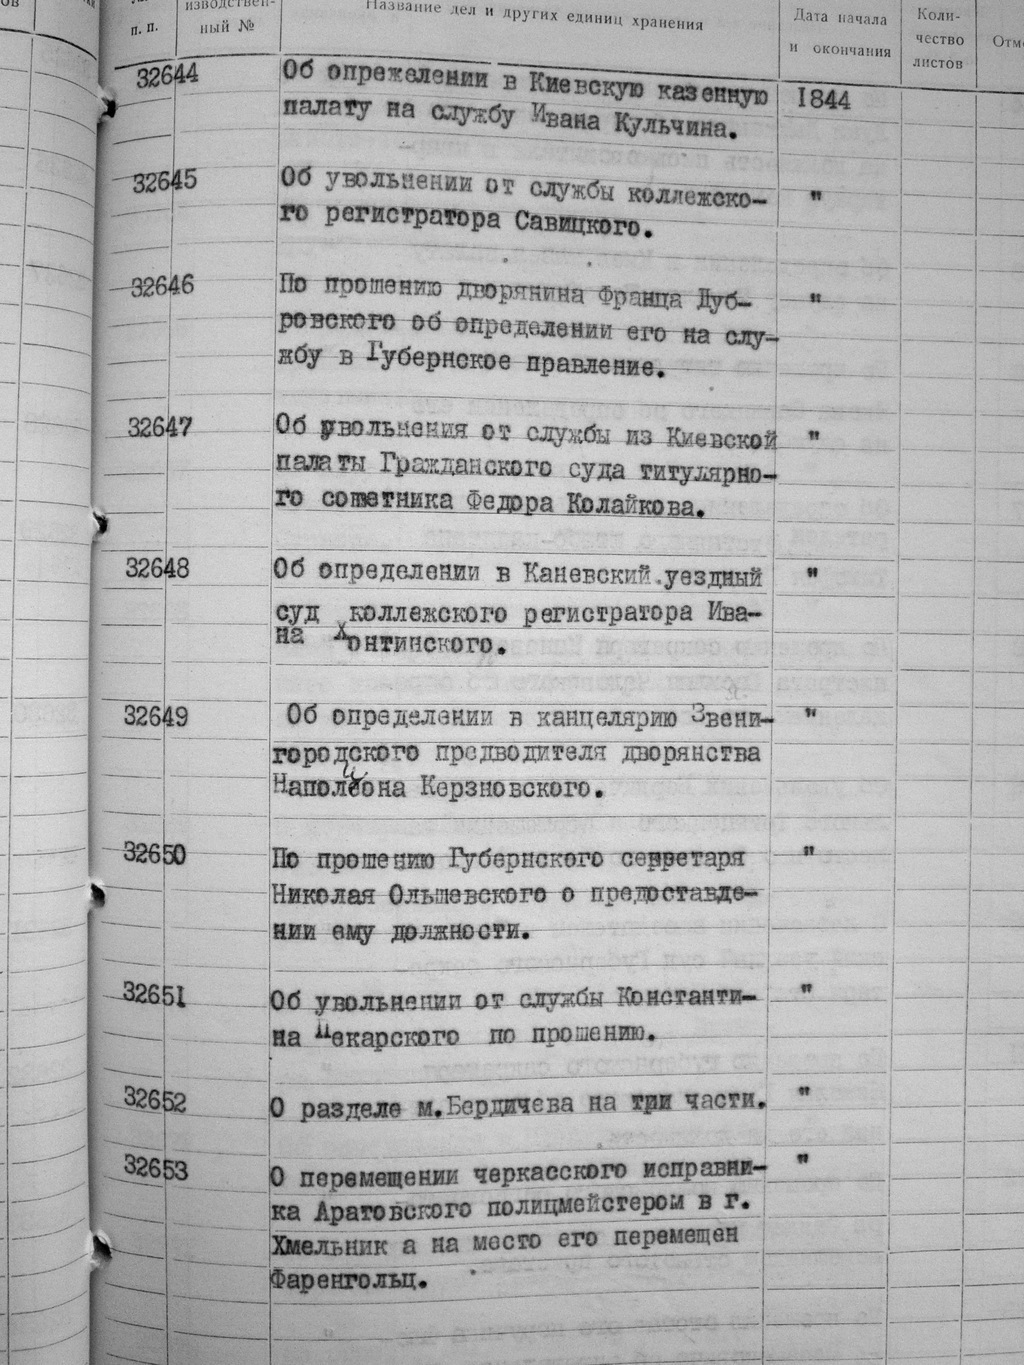 изводствен-
ный №
п. п.
Название дел и других единиц хранения
Дата начала
и окончания
Коли-
чество
листов
32644 Об опрежелении в Киевскую казенную 1844
палату на службу Ивана Кульчина.
32645 Об увольнении от службы коллежско- "
го регистратора Савицкого.
32646 По прошению дворянина Франца Дуб- "
ровского об определении его на слу-
жбу в Губернское правление.
32647 Об увольнения от службы из Киевской "
палаты Гражданского суда титулярно-
го советника Федора Колайкова.
32648 Об определении в Каневский уездный "
суд коллежского регистратора Ива-
на Хонтинского.
32649 Об определении в канцелярию Звени- "
городского предводителя дворянства
Наполеона Керзновского.
32650 По прошению Губернского секретаря "
Николая Ольшевского о предоставле-
нии ему должности.
32651 Об увольнении от службы Константи- "
на Пекарского по прошению.
32652 О разделе м.Бердичева на три части. "
32653 О перемещении черкасского исправни- "
ка Аратовского полицмейстером в г.
Хмельник а на место его перемещен
Фаренгольц.